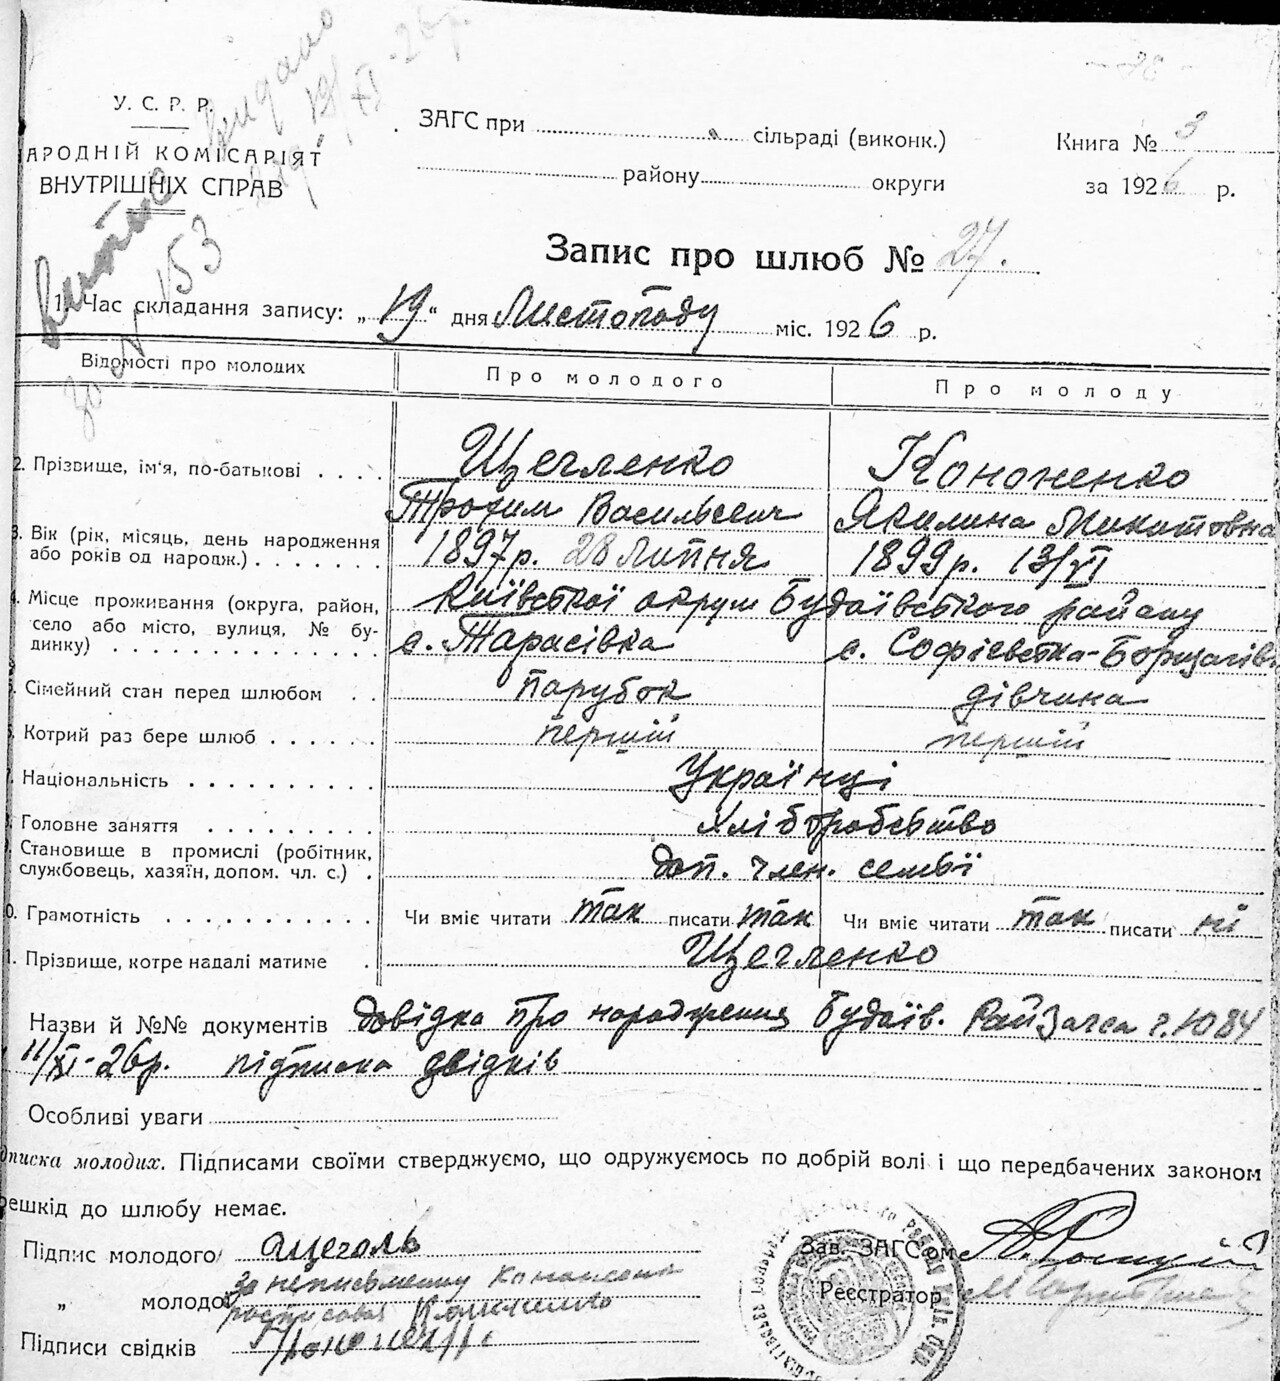 Витяг видано
за № 153 19/XI-26р.
28
У. С. Р. Р.
АРОДНІЙ КОМІСАРІЯТ
ВНУТРІШНІХ СПРАВ
ЗАГС при сільраді (виконк.)
району округи
Книга № 3
за 1926 р.
Запис про шлюб № 27.
1. Час складання запису: „19" дня Листопаду міс. 1926 р.
Відомості про молодих Про молодого Про молоду
2. Прізвище, ім'я, по-батькові . . . . Щегленко Кононенко
Трохим Васильевич Якилина Микитовна
3. Вік (рік, місяць, день народження або років од народж.) . . . . . . . 1897р. 28 Липня 1899р. 13/VI
4. Місце проживання (округа, район, Київської округи Будаївського району
село або місто, вулиця, № бу-
динку) . . . . . . . . . . . . . . с. Тарасівка с. Софієвска-Борщагівк
Сімейний стан перед шлюбом . . парубок дівчина
Котрий раз бере шлюб . . . . . . перший перший
Національність . . . . . . . . . . Українці
Головне заняття . . . . . . . . . хліборобство
Становище в промислі (робітник,
службовець, хазяїн, допом. чл. с.) . доп. член. семьї
0. Грамотність . . . . . . . . . . . Чи вміє читати так писати так Чи вміє читати так писати ні
1. Прізвище, котре надалі матиме . Щегленко
Назви й №№ документів довідка про народження Будаїв. РайЗагса г. 1084
11/XI-26р. підписка двідків
Особливі уваги
дписка молодих. Підписами своїми стверджуємо, що одружуємось по добрій волі і що передбачених законом
решкід до шлюбу немає.
Підпис молодого Щеголь
„ молодо За неписьменну Кононенко
росписовся Кононенко
Підписи свідків Кононенко
Зав. ЗАГС'ом
Реєстратор